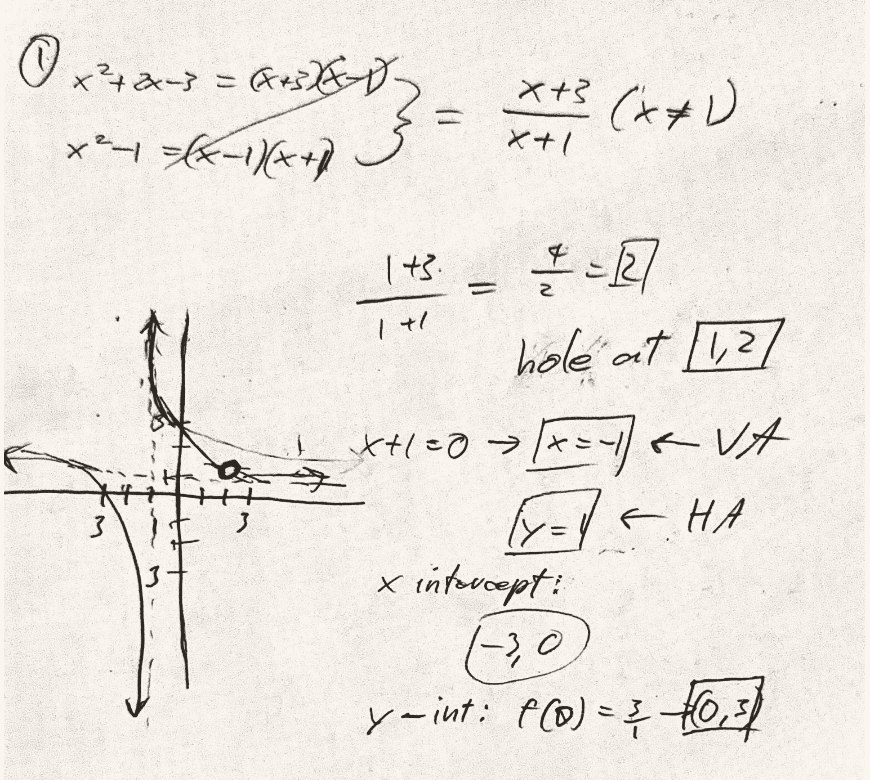 ①
x²+2x-3 = (x+3)(x-1)
x²-1 = (x-1)(x+1)
} = x+3/x+1 (x≠1)
1+3/1+1 = 4/2 = 2
hole at 1,2
x+1=0 → x=-1 ← VA
y=1 ← HA
x intercept:
-3, 0
y-int: f(0) = 3/1 → (0,3)
3
1
3
3
3